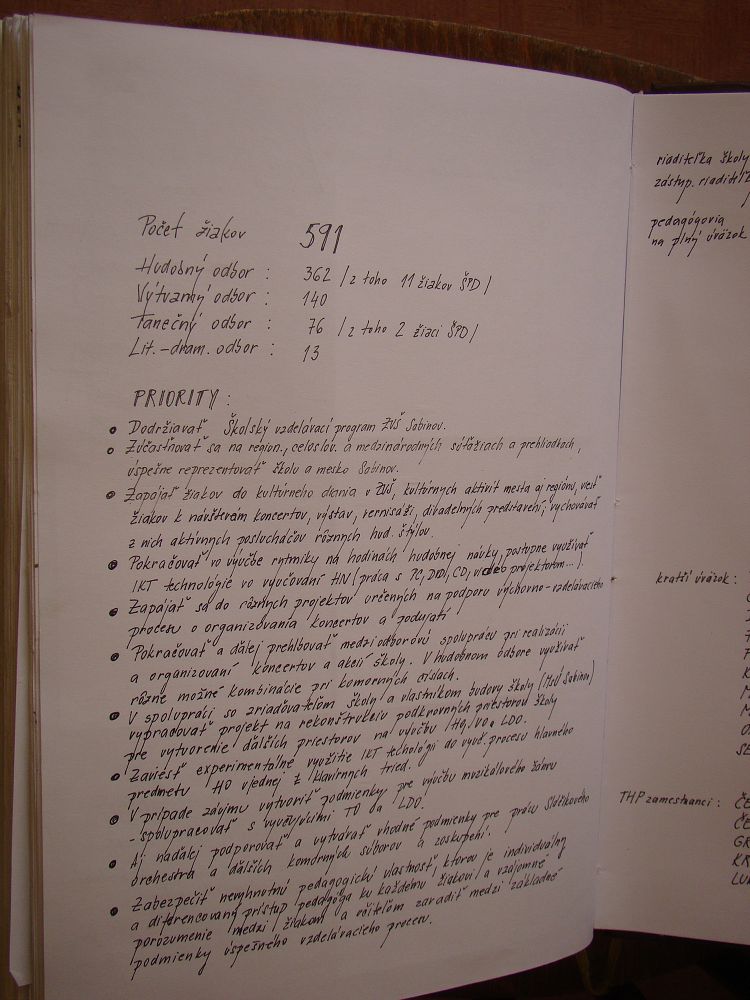 Počet žiakov 591
Hudobný odbor : 362 / z toho 11 žiakov ŠPD /
Výtvarný odbor : 140
Tanečný odbor : 76 / z toho 2 žiaci ŠPD /
Lit.-dram. odbor : 13
PRIORITY :
• Dodržiavať Školský vzdelávací program ZUŠ Sabinov.
• Zúčastňovať sa na región., celoslov. a medzinárodných súťažiach a prehliadkach,
úspešne reprezentovať školu a mesto Sabinov.
• Zapájať žiakov do kultúrneho diania v ZUŠ, kultúrnych aktivít mesta aj regiónu, viesť
žiakov k návštevám koncertov, výstav, vernisáží, divadelných predstavení, vychovávať
z nich aktívnych poslucháčov rôznych hud. štýlov.
• Pokračovať vo výučbe rytmiky na hodinách hudobnej náuky, postupne využívať
IKT technológie vo vyučovaní HN (práca s PC, DVD, CD, videoprojektorom...).
• Zapájať sa do rôznych projektov určených na podporu výchovno-vzdelávacieho
procesu o organizovania koncertov a podujatí
• Pokračovať a ďalej prehlbovať medziodborovú spoluprácu pri realizácii
a organizovaní koncertov a akcií školy. V hudobnom odbore využívať
rôzne možné kombinácie pri komorných číslach.
• V spolupráci so zriaďovateľom školy a vlastníkom budovy školy (MsÚ Sabinov)
vypracovať projekt na rekonštrukciu podkrovných priestorov školy
pre vytvorenie ďalších priestorov na výučbu HO, VO a LDO.
• Zaviesť experimentálne využitie IKT technológií do vyuč. procesu hlavného
predmetu HO v jednej z klavírnych tried.
• V prípade záujmu vytvoriť podmienky pre výučbu muzikálového žánru
- spolupracovať s vyučujúcimi TO a LDO.
• Aj naďalej podporovať a vytvárať vhodné podmienky pre prácu Sláčikového
orchestra a ďalších komorných súborov a zoskupení.
• Zabezpečiť nevyhnutnú pedagogickú vlastnosť ktorou je individuálny
a diferencovaný prístup pedagóga ku každému žiakovi a vzájomné
porozumenie medzi žiakom a učiteľom zaradiť medzi základné
podmienky úspešného vzdelávacieho procesu.
riaditeľka školy
zástup. riaditeľk
pedagógovia
na plný úväzok
kratší úväzok :
THP zamestnanci :